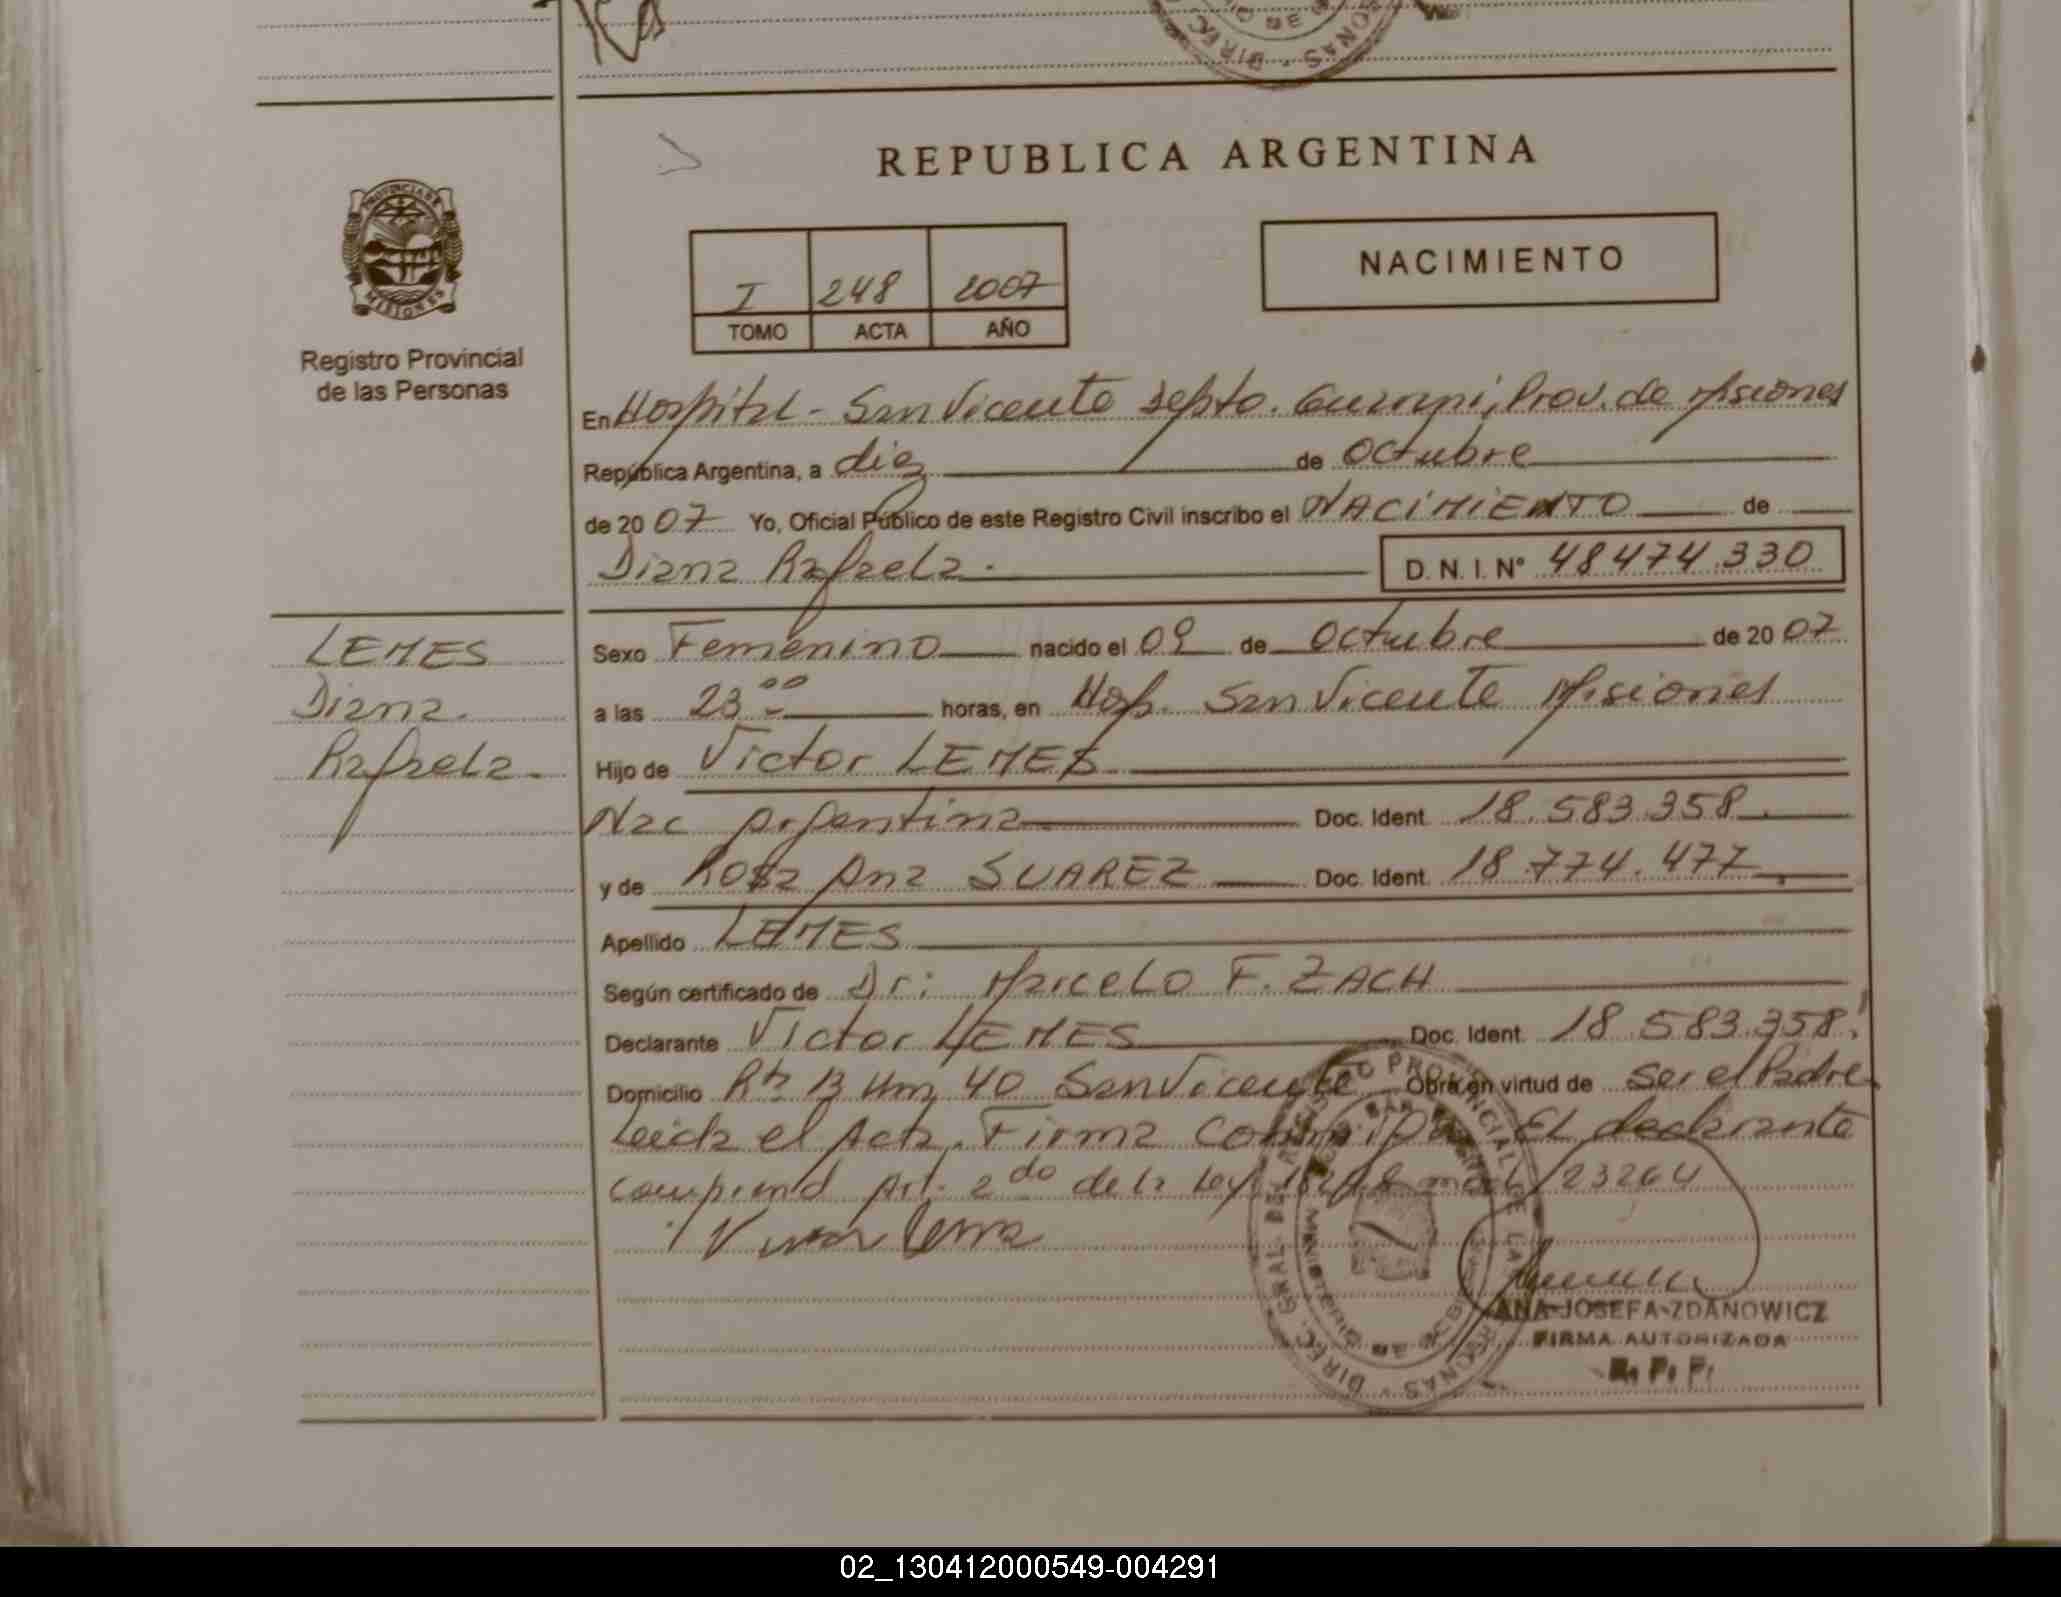 REPUBLICA ARGENTINA
PROVINCIA DE MISIONES
Registro Provincial
de las Personas
I 248 2007
TOMO ACTA AÑO
NACIMIENTO
En Hospital - San Vicente Depto. Guarani, Prov. de Misiones
República Argentina, a diez de Octubre
de 20 07 Yo, Oficial Público de este Registro Civil inscribo el NACIMIENTO de
Diana Rafaela. D. N. I. N° 48474.330
LEMES
Diana
Rafaela
Sexo Femenino nacido el 09 de Octubre de 20 07
a las 23 00 horas, en Hosp. San Vicente Misiones
Hijo de Victor LEMES
Nac Argentina Doc. Ident. 18.583.358
y de Rosa Ana SUAREZ Doc. Ident. 18.774.477
Apellido LEMES
Según certificado de Dr: Marcelo F. ZACH
Declarante Victor LEMES Doc. Ident. 18.583.358
Domicilio Rta 13 Km 40 San Vicente Obra en virtud de ser el Padre
Leida el Acta. Firma Conmigo El declarante
comprend Art. 2do de la Ley 23264
ANA JOSEFA ZDANOWICZ
FIRMA AUTORIZADA
R. P. P.
02_130412000549-004291